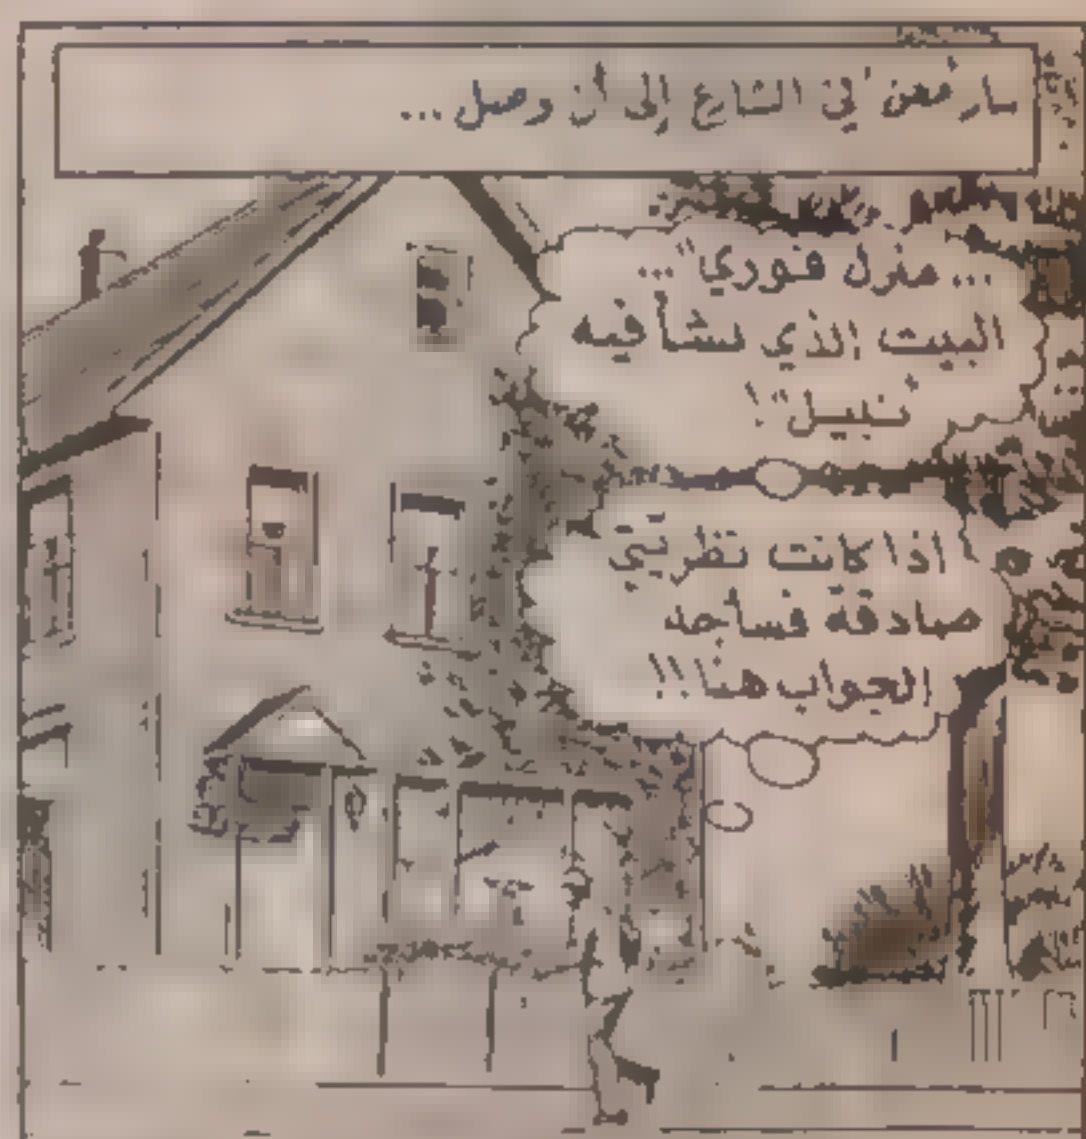 سار "معن" في الشارع إلى أن وصل ...
... منزل فوري" ...
البيت الذي نشأ فيه
"نبيل"!
اذا كانت نظريتي
صادقة فسأجد
الجواب هنا!!